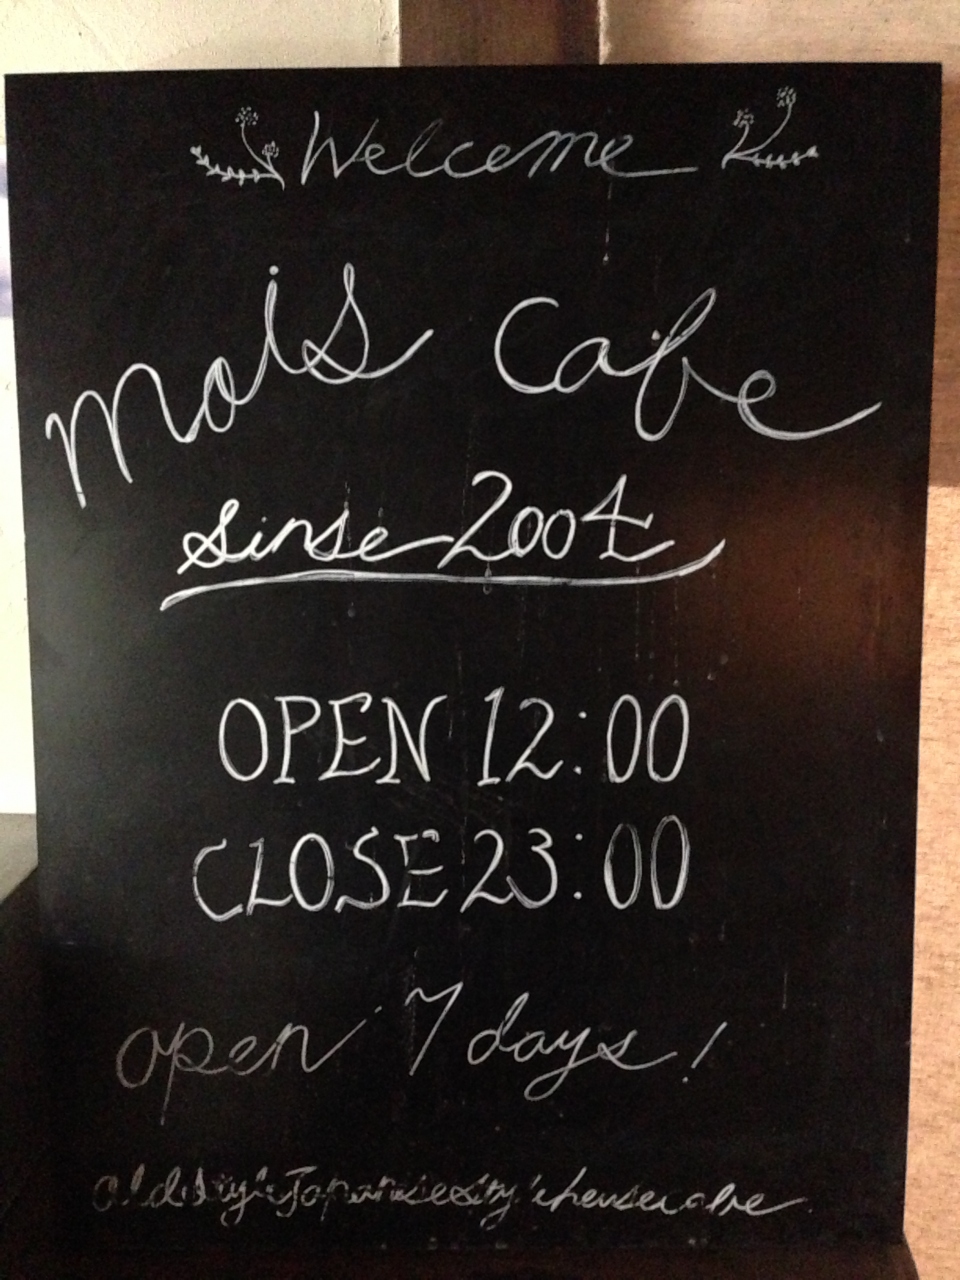 Welcome
mois cafe
sinse 2004
OPEN 12:00
CLOSE 23:00
open 7 days!
old style Japanese style